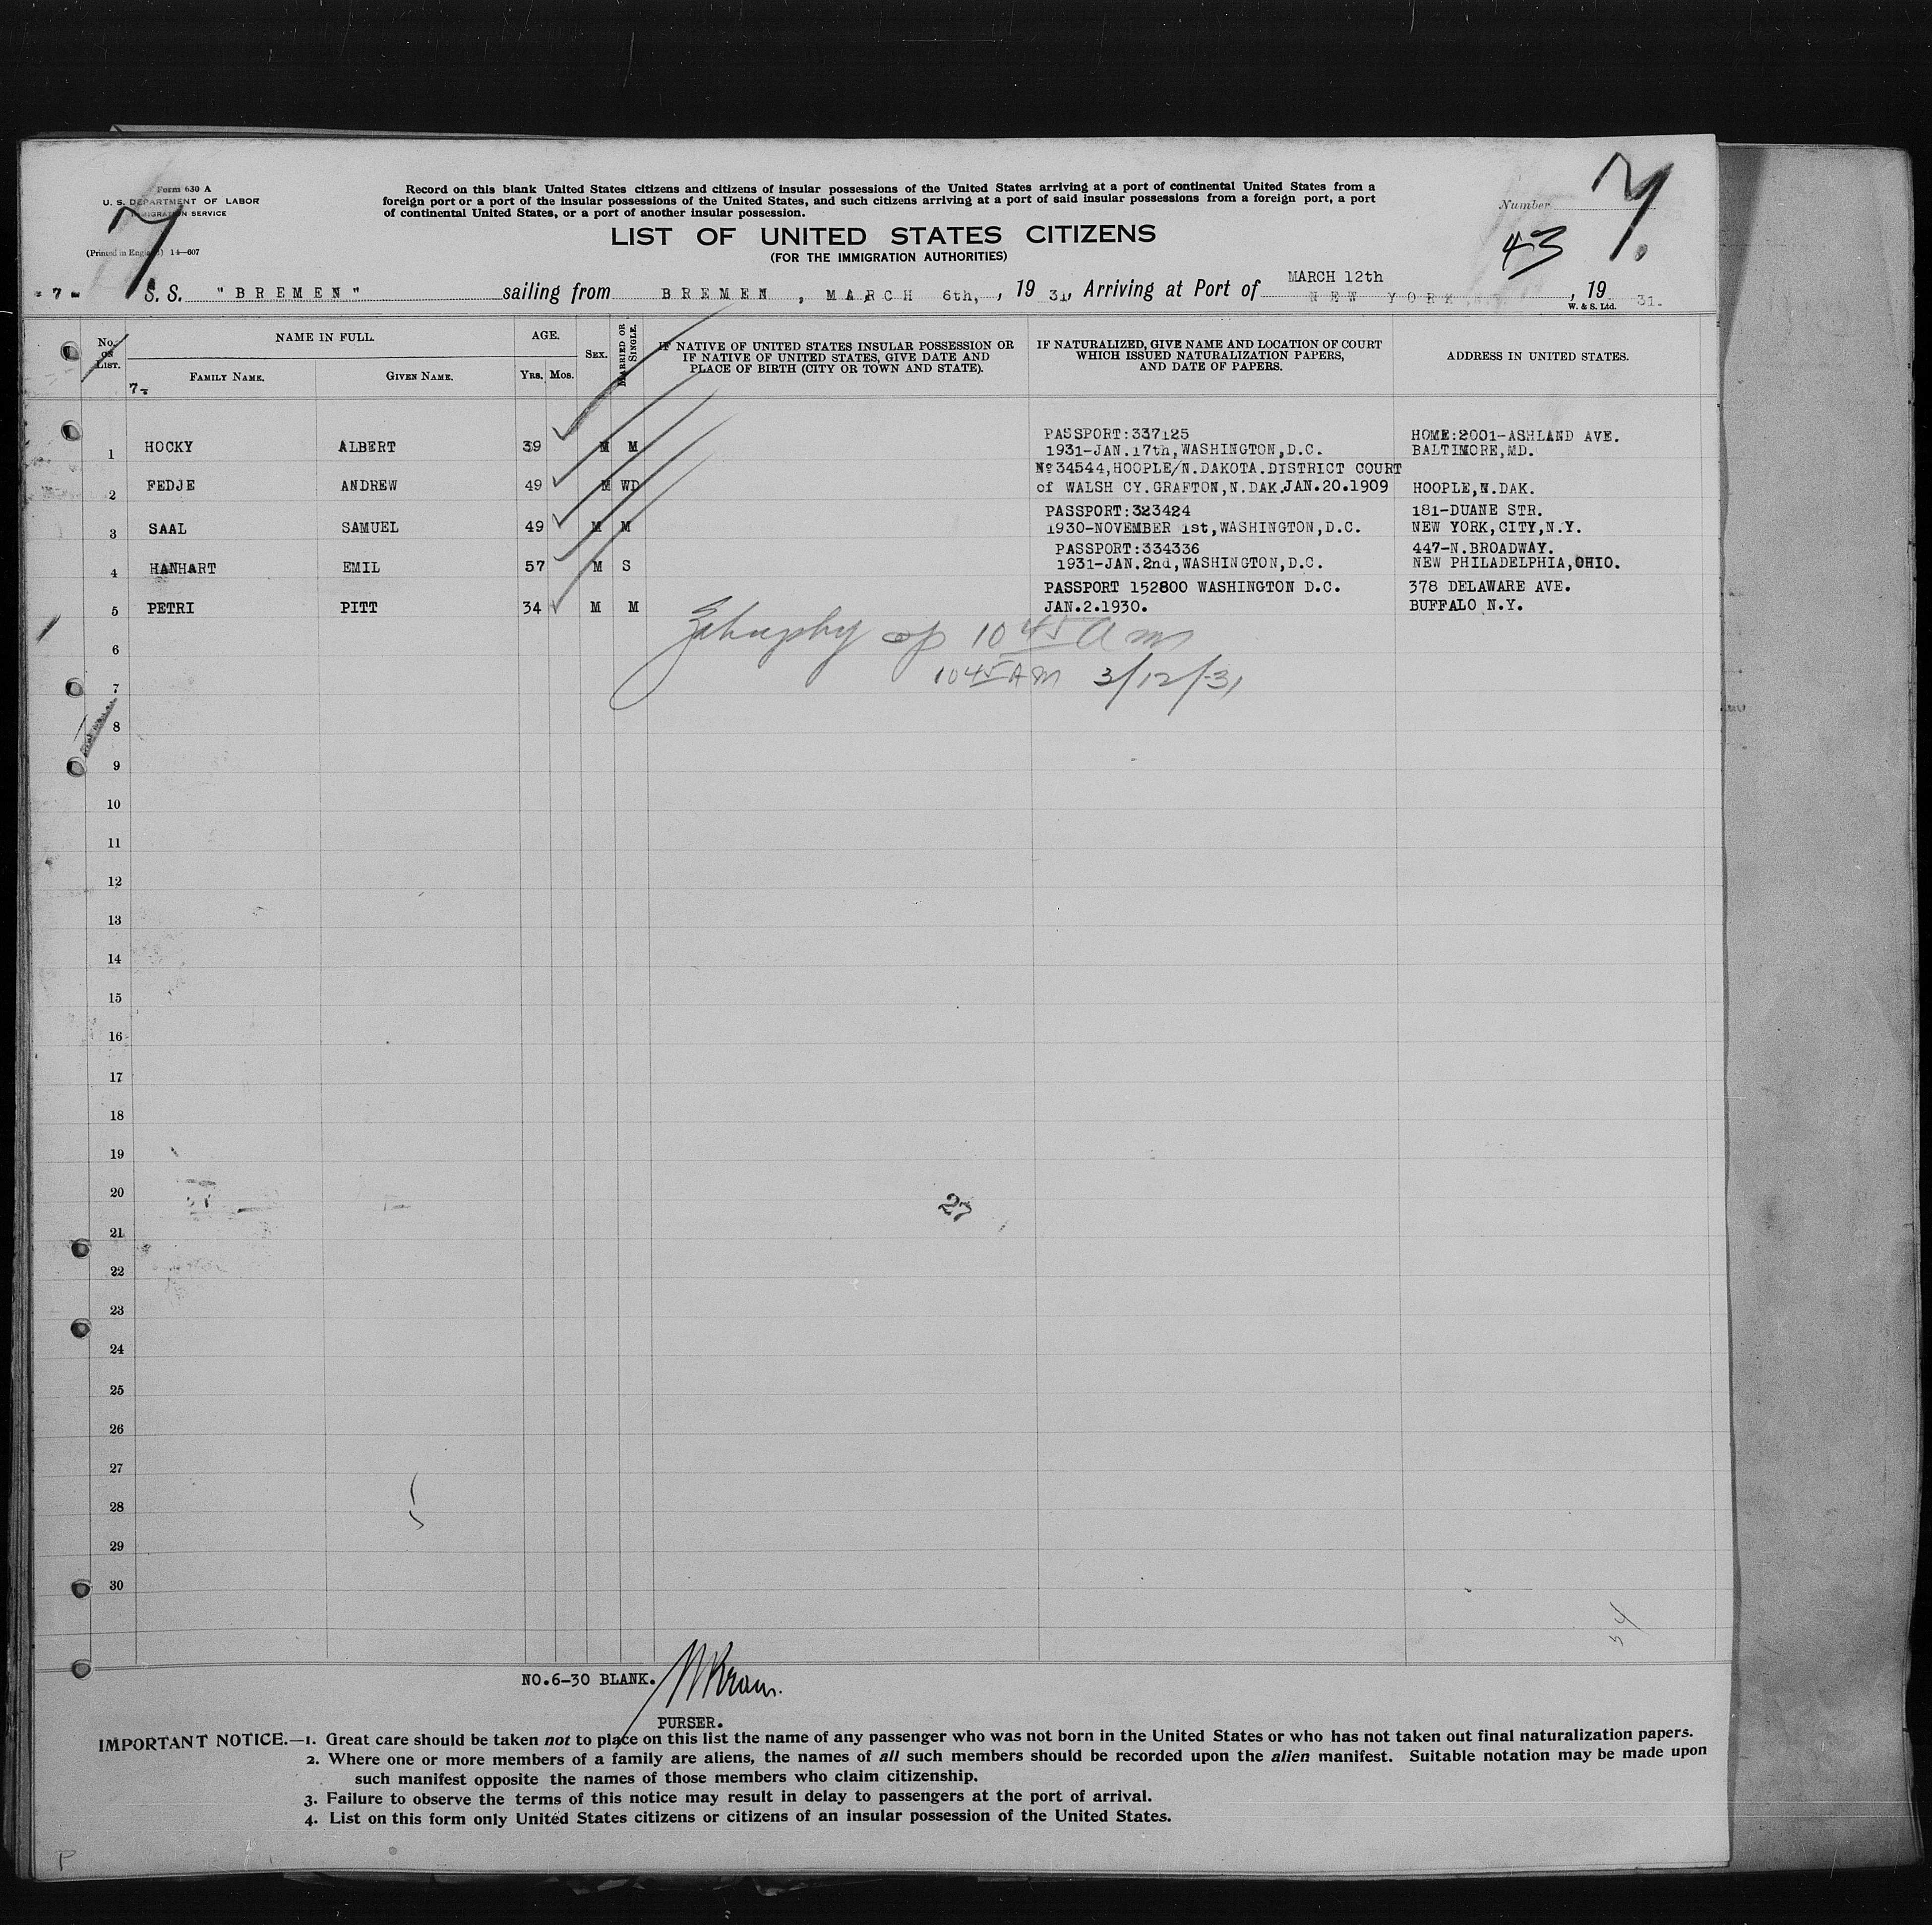 Form 630 A
U. S. DEPARTMENT OF LABOR
IMMIGRATION SERVICE
(Printed in England) 14—607
7
Record on this blank United States citizens and citizens of insular possessions of the United States arriving at a port of continental United States from a
foreign port or a port of the insular possessions of the United States, and such citizens arriving at a port of said insular possessions from a foreign port, a port
of continental United States, or a port of another insular possession.
Number
7.
43
LIST OF UNITED STATES CITIZENS
(FOR THE IMMIGRATION AUTHORITIES)
- 7 - S. S. "BREMEN" sailing from BREMEN, MARCH 6th, , 19 31, Arriving at Port of MARCH 12th NEW YORK , 19 31.
W. & S. Ltd.
No. on List.
NAME IN FULL.
Family Name.
Given Name.
AGE.
Yrs. Mos.
Sex.
Married or Single.
IF NATIVE OF UNITED STATES INSULAR POSSESSION OR
IF NATIVE OF UNITED STATES, GIVE DATE AND
PLACE OF BIRTH (CITY OR TOWN AND STATE).
IF NATURALIZED, GIVE NAME AND LOCATION OF COURT
WHICH ISSUED NATURALIZATION PAPERS,
AND DATE OF PAPERS.
ADDRESS IN UNITED STATES.
7-
PASSPORT:337125 HOME:2001-ASHLAND AVE.
1 HOCKY ALBERT 39 M M 1931-JAN.17th,WASHINGTON,D.C. BALTIMORE,MD.
No 34544,HOOPLE/N.DAKOTA.DISTRICT COURT
2 FEDJE ANDREW 49 M WD of WALSH CY.GRAFTON,N.DAK.JAN.20.1909 HOOPLE,N.DAK.
PASSPORT:323424 181-DUANE STR.
3 SAAL SAMUEL 49 M M 1930-NOVEMBER 1st,WASHINGTON,D.C. NEW YORK,CITY,N.Y.
PASSPORT:334336 447-N.BROADWAY.
4 HANHART EMIL 57 M S 1931-JAN.2nd,WASHINGTON,D.C. NEW PHILADELPHIA,OHIO.
PASSPORT 152800 WASHINGTON D.C. 378 DELAWARE AVE.
5 PETRI PITT 34 M M JAN.2.1930. BUFFALO N.Y.
10 45 A m
6
10 45 AM 3/12/31
7
8
9
10
11
12
13
14
15
16
17
18
19
20
21
22
23
24
25
26
27
28
29
30
NO.6-30 BLANK.
PURSER.
IMPORTANT NOTICE.—1. Great care should be taken not to place on this list the name of any passenger who was not born in the United States or who has not taken out final naturalization papers.
2. Where one or more members of a family are aliens, the names of all such members should be recorded upon the alien manifest. Suitable notation may be made upon
such manifest opposite the names of those members who claim citizenship.
3. Failure to observe the terms of this notice may result in delay to passengers at the port of arrival.
4. List on this form only United States citizens or citizens of an insular possession of the United States.
P